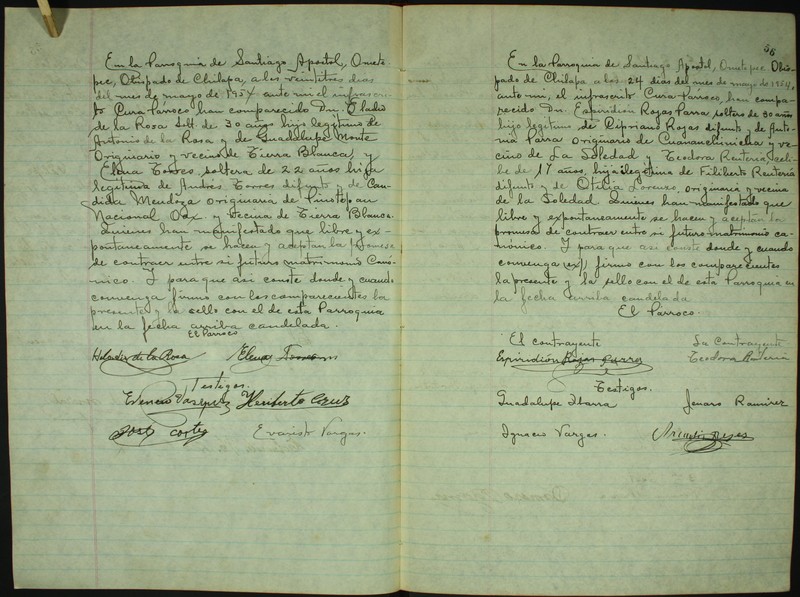 En la Parroquia de Santiago Apostol, Omete
pec, Obispado de Chilapa, a los veintitres dias
del mes de mayo de 1954 ante mi el infrascri-
to Cura Párroco han comparecido Dn.
de la Rosa solt. de 30 años hijo legítimo de
Antonio de la Rosa y de Guadalupe Monte
Originario y vecino de Tierra Blanca, y
Elena Torres soltera de 22 años hija
legitima de Andrés Torres difunto y de Can-
dida Mendoza originaria de Pinotepan
Nacional Oax. y vecina de Tierra Blanca.
Quienes han manifestado que libre y ex-
pontaneamente se hacen y aceptan la promesa
de contraer entre si futuro matrimonio Canó-
nico. Y para que asi conste donde y cuando
convenga firmo con los comparecientes la
presente y la sello con el de esta Parroquia
en la fecha arriba candelada.
El Parroco
de la Rosa Elena Torres
Testigos.
Vasquez Heriberto Cruz
José Cortes Evaristo Vargas.
66
En la Parroquia de Santiago Apostol, Ometepec Obis-
pado de Chilapa a los 24 dias del mes de mayo de 1954,
ante mi, el infrascrito Cura Párroco, han compa-
recido Dn. Espiridión Rojas Parra soltero de 30 años
hijo legitimo de Cipriano Rojas difunto y de Anto-
nia Parra originario de Cuanacaxtitlan y ve-
cino de La Soledad y Teodora Renteria, céli-
be de 17 años, hija legitima de Filiberto Renteria
difunto y de Otilia Lorenzo, originaria y vecina
de la Soledad. Quienes han manifestado que
libre y expontaneamente se hacen y aceptan la
promesa de contraer entre si futuro matrimonio ca-
nónico. Y para que asi conste donde y cuando
convenga firmo con los comparecientes
la presente y la sello con el de esta Parroquia en
la fecha arriba candelada
El Parroco.
El contrayente La Contrayente
Espiridión Rojas Parra Teodora Renteria
Testigos.
Guadalupe Ibarra Jenaro Ramirez
Ignacio Vargas. Reyes